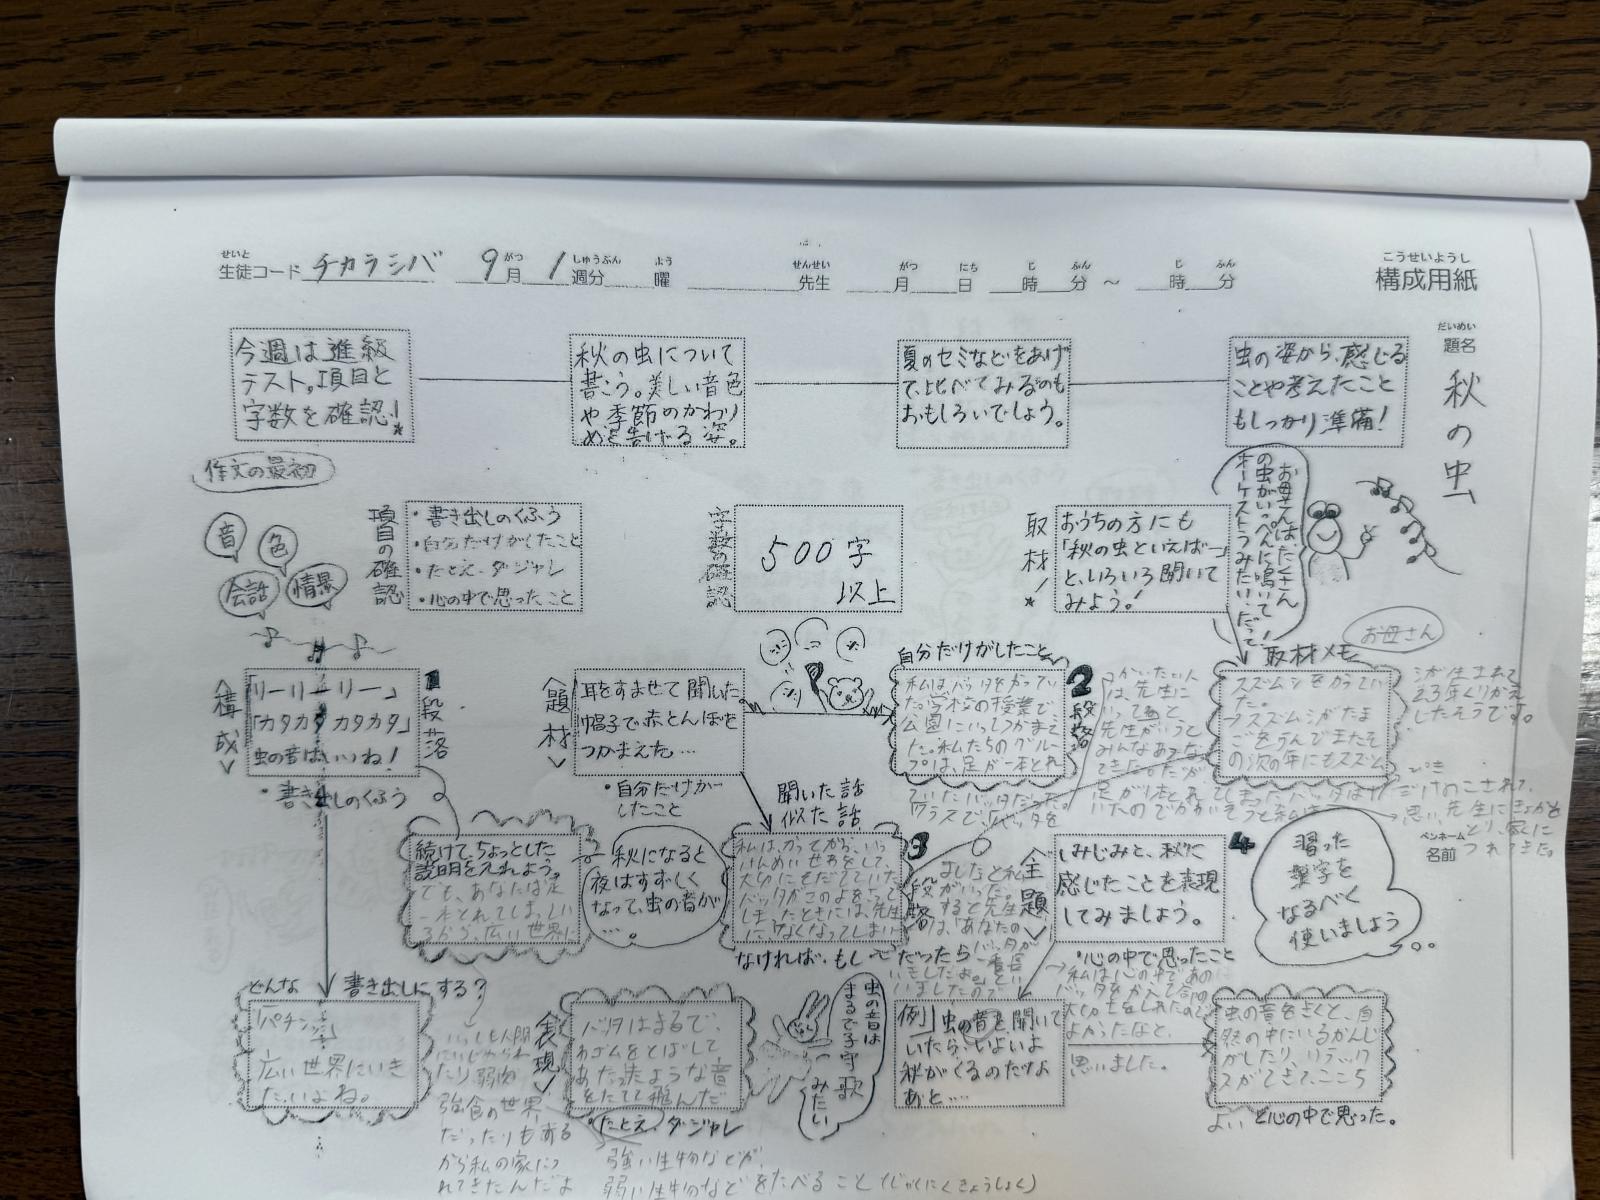 構成用紙
こうせいようし
せいと
生徒コード チカラシバ 9月 1週分 曜 先生 月 日 時 分 〜 時 分
がつ しゅうぶん よう せんせい がつ にち じ ふん じ ふん
だいめい
題名
秋の虫
虫の姿から、感じる
ことや考えたこと
もしっかり準備!
夏のセミなどをあげ
て、比べてみるのも
おもしろいでしょう。
秋の虫について
書こう。美しい音色
や季節のかわり
めを告げる姿。
今週は進級
テスト。項目と
字数を確認!
作文の最初
音
色
会話
情景
項目の確認
・書き出しのくふう
・自分だけがしたこと
・たとえ・ダジャレ
・心の中で思ったこと
字数の確認
500字
以上
取材!
おうちの方にも
「秋の虫といえば…」
と、いろいろ聞いて
みよう!
お母さんは、たくさん
の虫がいっぺんに鳴いて
オーケストラみたい!だって!
お母さん
取材メモ
スズムシをかってい
た。
スズムシがたま
ごをうんでまたそ
の次の年にもスズム
シが生まれて
2.3年くりかえ
したそうです。
〈構成〉
「リーリーリー」
「カタカタカタカタ」
虫の音はいいね!
・書き出しのくふう
1段落
〈題材〉
耳をすませて聞いた
帽子で赤とんぼを
つかまえた…
・自分だけがー
したこと
自分だけがしたこと
私はバッタをかってい
た。学校の授業で
公園にいってつかまえ
た。私たちのグルー
プは、足が一本とれ
ていたバッタだった。
クラスで、バッタを
2段落
かいたい人
は、先生に
いってと
先生がいうと
みんなあつ
てきた。だが
足が1本とれ
いたのでかわいそうと私は
思い、先生にきょかを
とり、家に
つれてきた。
ペンネーム
名前
続けて、ちょっとした
説明を入れよう。
でも、あなたは足
一本とれてしまっ
広い世界に
秋になると
夜はすずしく
なって、虫の音が
…。
聞いた話
似た話
私は、かってから、いっ
しょうけんめいせわをして、
大切にそだてていた。
バッタがこのよをさって
しまったときには、先生
に、なくなってしまい
ましたと私
がいった。
すると先生
は、「あなたの
バッタが
一番長
いきしたよ。」とい
いましたので
3段落
なければ・もし〜だったら
〈主題〉
しみじみと、秋に
感じたことを表現
してみましょう。
4
・心の中で思ったこと
→私は心の中であの
バッタをかって
大切に
よかったなと、
思いました。
習った
漢字を
なるべく
使いましょう
どんな 書き出しにする?
「パチン」
広い世界にいき
たいよね。
人間
たり弱肉
強食の世界
だったりもある
から私の家につ
れてきたんだよ
〈表現〉
バッタはまるで、
わゴムをとばして
あたったような音
をたてて飛んだ
・たとえ・ダジャレ
強い生物などが、
弱い生物などをたべること(じゃくにくきょうしょく)
虫の音は
まるで子守歌
みたい
例 虫の音を聞いて
いたら、いよいよ
秋がくるのだな
あと…。
虫の音をきくと、自
然の中にいるかんじ
がしたり、リラック
スができて、ここち
よいと心の中で思った。